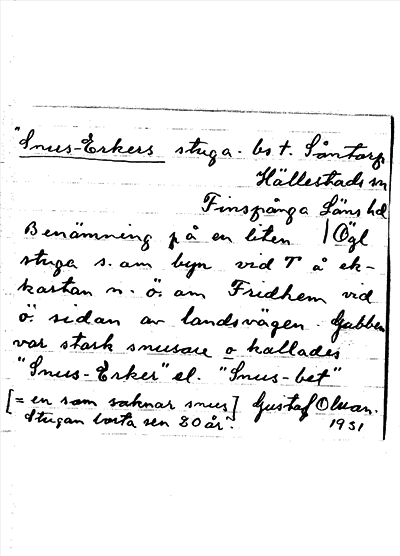 "Snus-Erkers stuga. bs t. Såntorp
Hällestads sn
Finspånga Läns hd
Benämning på en liten | Ögl
stuga s. om byn vid T å ek-
kastan n. ö. om Fridhem vid
ö. sidan av landsvägen. Gubben
var stark snusare o kallades
"Snus-Erker" el. "Snus-bet"
[= en som saknar snus] Gustaf Olsson.
Stugan borta sen 80 år. 1931